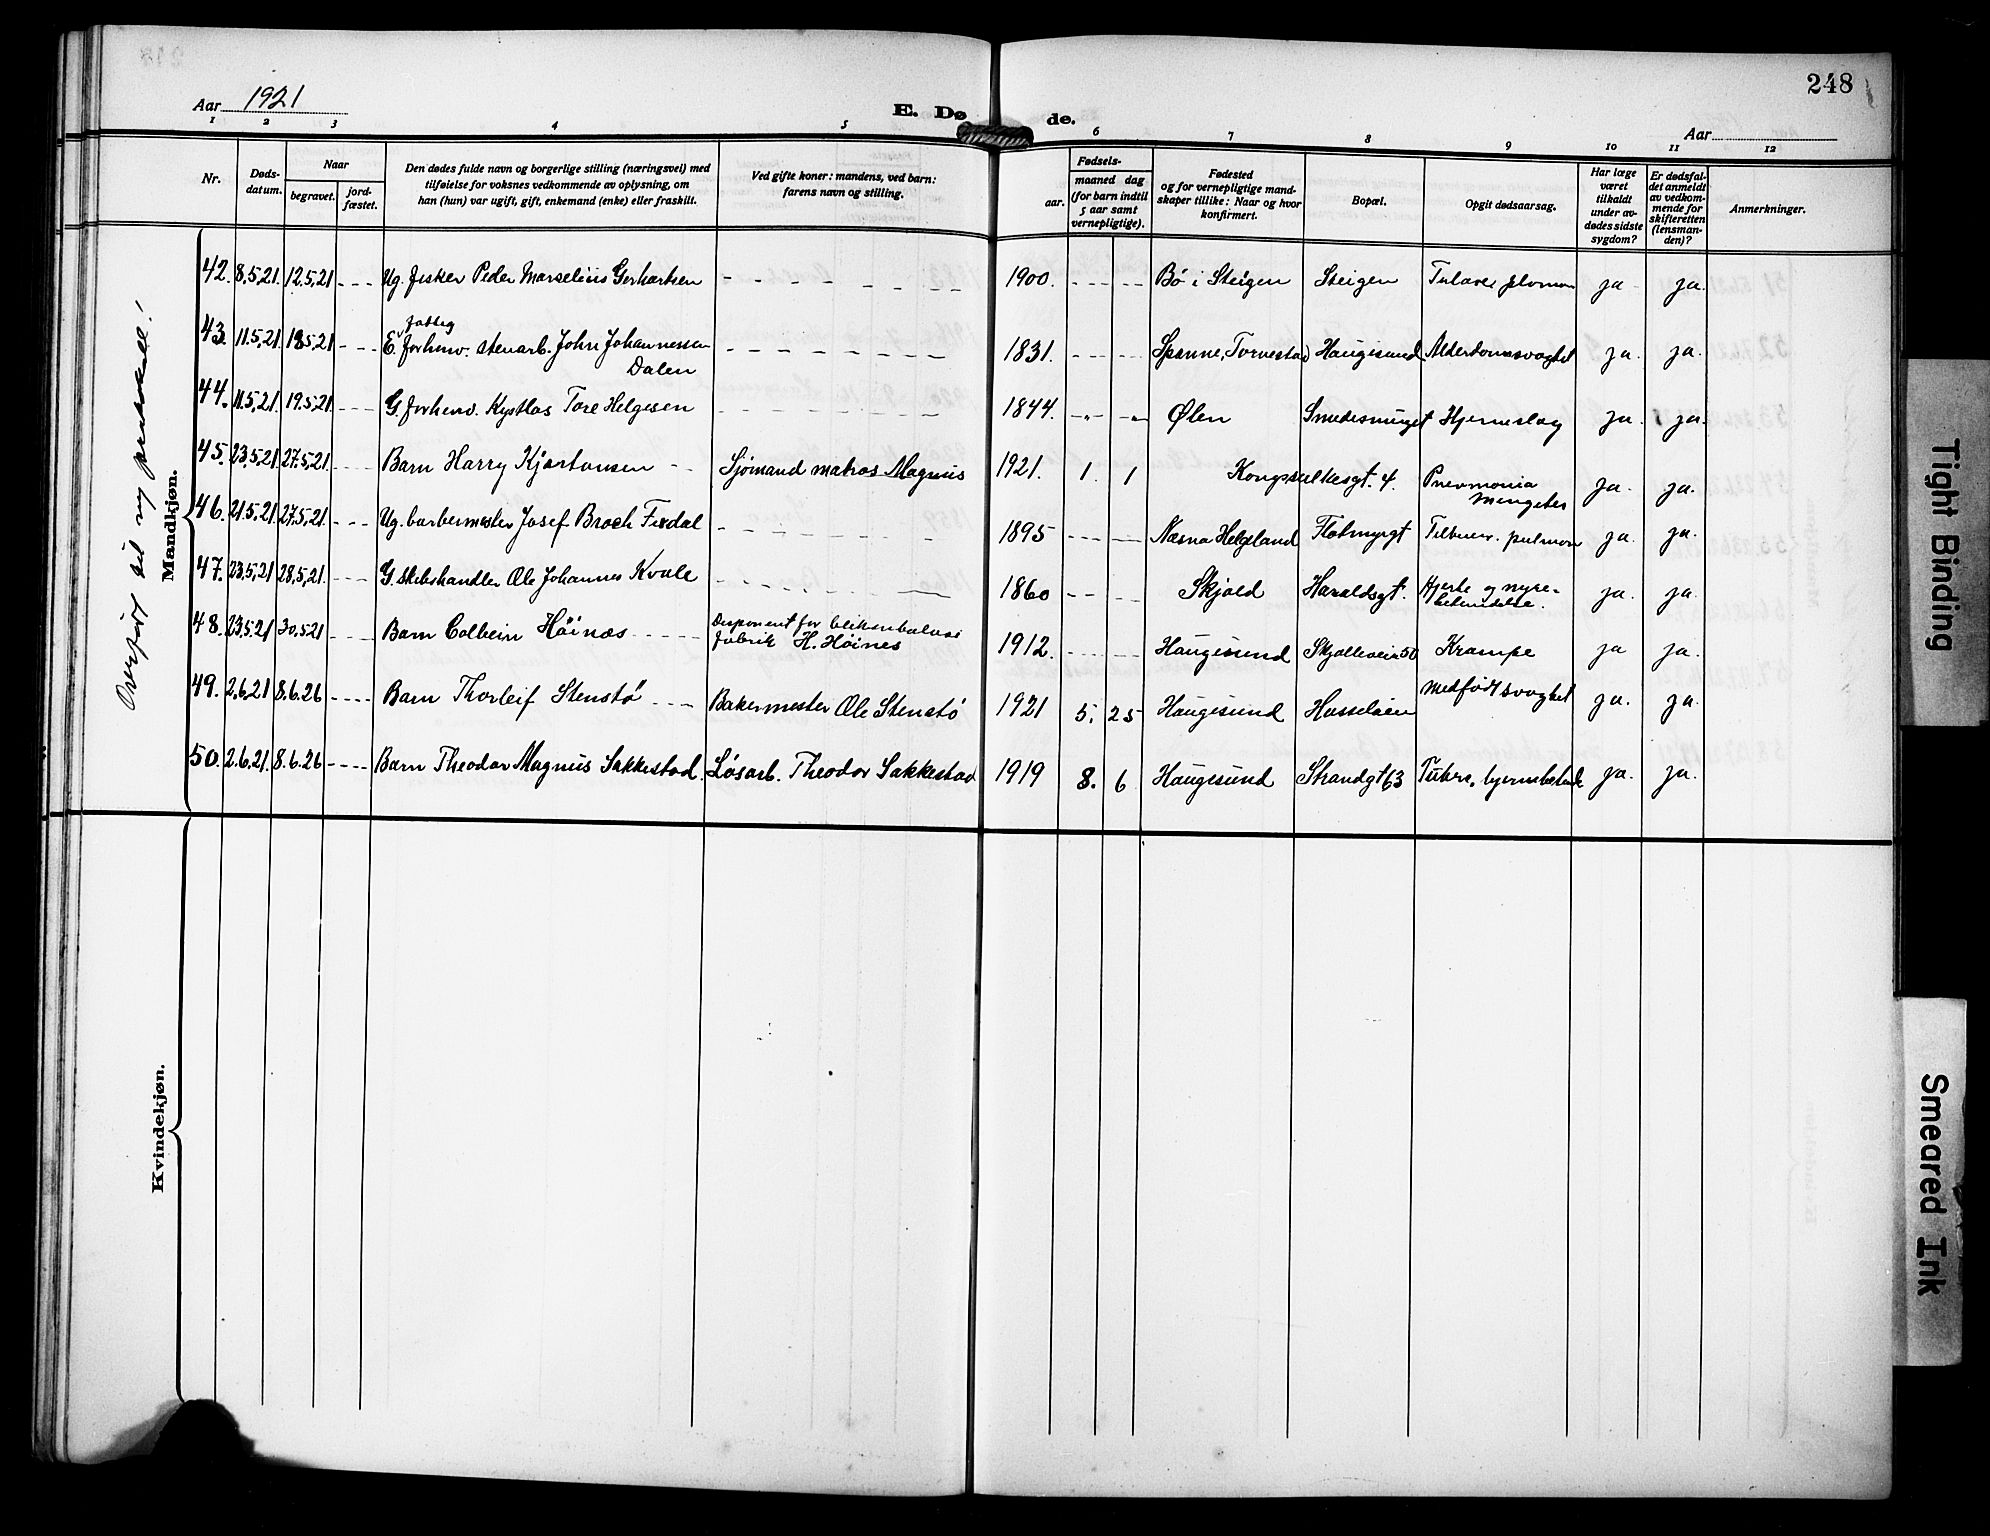 248
Aar 1921
E. Dø de.
Aar
1 2 3 4 5 6 7 8 9 10 11 12
Nr.
Døds-
datum.
Naar
begravet.
jord-
fæstet.
Den dødes fulde navn og borgerlige stilling (næringsvei) med
tilføielse for voksnes vedkommende av oplysning, om
han (hun) var ugift, gift, enkemand (enke) eller fraskilt.
Ved gifte koner: mandens, ved barn:
farens navn og stilling.
Fødsels-
aar.
maaned dag
(for barn indtil
5 aar samt
vernepligtige).
Fødested
og for vernepligtige mand-
skaper tillike: Naar og hvor
konfirmert.
Bopæl.
Opgit dødsaarsag.
Har læge
været
tilkaldt
under av-
dødes sidste
sygdom?
Er dødsfal-
det anmeldt
av vedkom-
mende for
skifteretten
(lensman-
den)?
Anmerkninger.
Overført til ny protokoll!
Mandkjøn.
42. 8.5.21. 12.5.21 --- Ug. fisker Peder Marselius Gerhartsen - - - - - - - 1900. --- --- Bø i Steigen Steigen ja ja.
fattig
43. 11.5.21 18.5.21 --- E. forhenv. stenarb. John Johannessen - - - - - - - 1831. --- --- Spanne, Torvestad Haugesund Alderdomssvaghet ja. ja.
Dalen
44. 11.5.21. 19.5.21. --- G. forhenv. Kystlos Tore Helgesen - - - - - - - 1844. -"- -"- Ølen Smedesmuget Hjerneslag ja. ja.
45. 23.5.21 27.5.21 --- Barn Harry Kjartansen -- Sjømand matros Magnus 1921. 1. 1 Pnevmonia ja. ja.
46. 21.5.21 27.5.21. --- Ug. barbermester Josef Broch Fixdal - - - - - - 1895 --- --- Næsna Helgeland Flotmyrgt ja. ja.
47. 23.5.21 28.5.21. --- G. Ole Johannes Kvale - - - - - 1860 -- -- Skjold Haraldsgt. Hjerte og nyre- ja. ja.
betendelse.
48. 23.5.21 30.5.21 --- Barn Colbein Höinæs ---- Disponent for
fabrik H. Höines 1912. --- --- Haugesund 50 Krampe ja ja.
49. 2.6.21 8.6.26 ---- Barn Thorleif Stenstö --- Bakermester Ole Stenstö 1921 5. 25 Haugesund Hasseløen Medfødt svaghet ja. ja.
50. 2.6.21. 8.6.26 ---- Barn Theodor Magnus Sakkestad. Løsarb. Theodor Sakkestad 1919 8. 6 Haugesund Strandgt 63 ja. ja.
Kvindekjøn.
Tight Binding
Smeared Ink